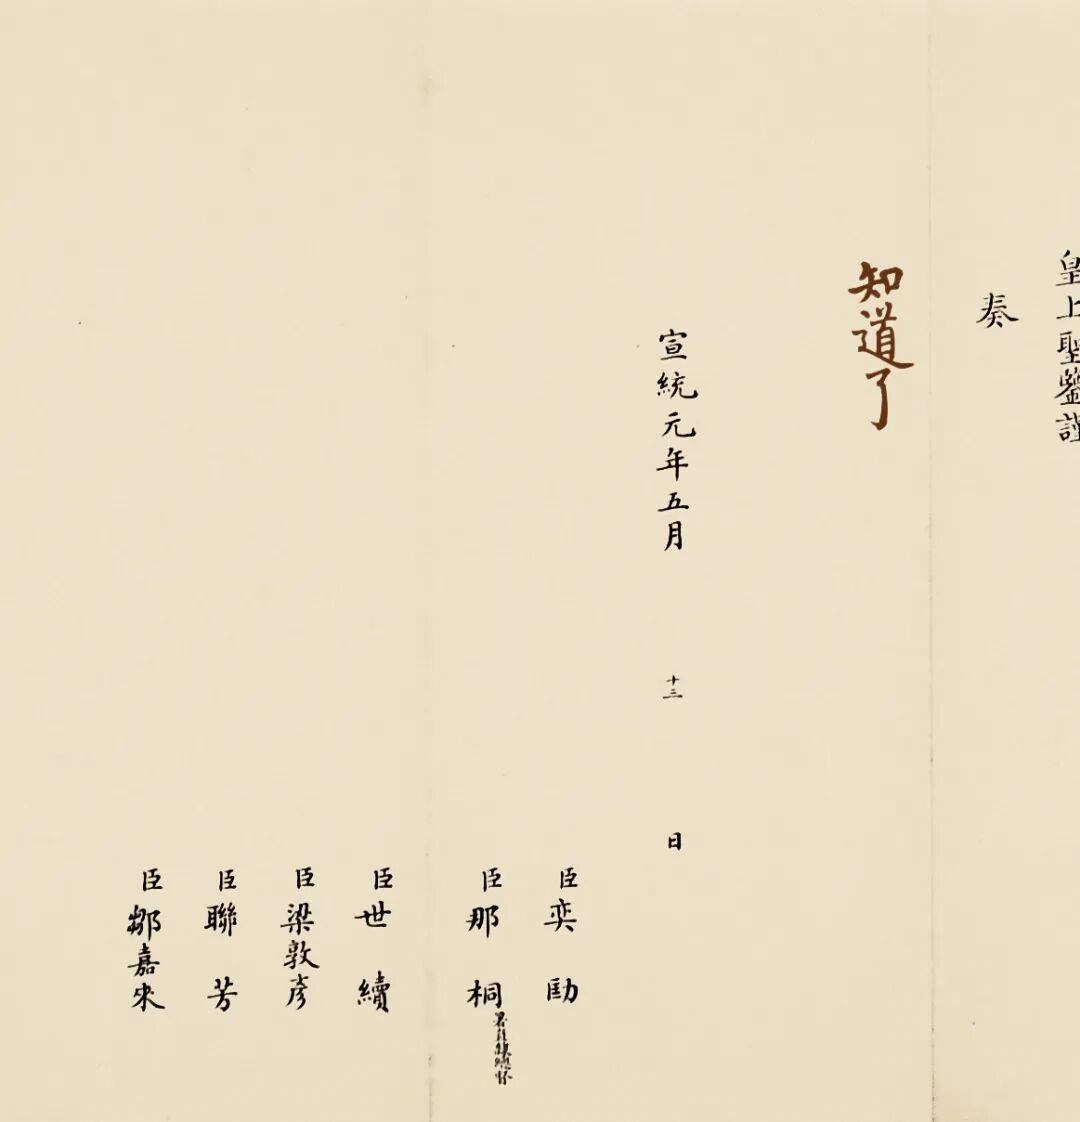 皇上聖鑒謹
奏
知道了
宣統元年五月 十三 日
臣奕劻
臣那桐
臣世續
臣梁敦彥
臣聯芳
臣鄒嘉來